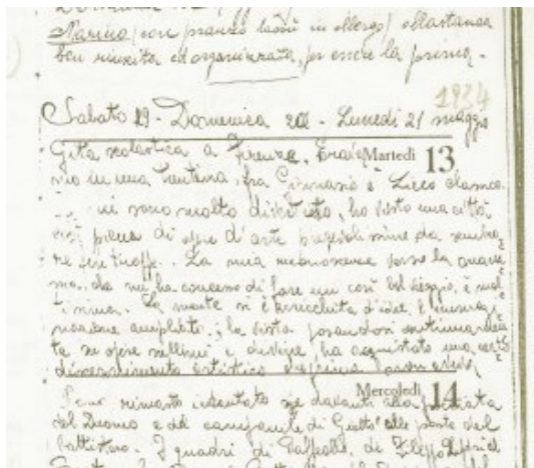 Marino (con pranzo lassù in albergo) abbastanza
ben riuscita ed organizzata, per essere la prima.
1934
Sabato 19 - Domenica 20 - Lunedì 21 maggio
Gita scolastica a Firenze. Erava- Martedì 13
mo in una ventina, fra Ginnasio e Liceo classico.
mi sono molto divertito, ho visto una città
piena di opere d'arte pregevolissime da sembra-
re fin troppe. La mia riconoscenza verso la mam-
ma, che mi ha concesso di fare un così bel viaggio, è
La mente si è arricchita d'idee, l'immagi-
nazione ampliata; la vista posandosi
ta su opere sublimi e divine ha acquistato una certo
discernimento artistico
Mercoledì 14
rimasto incantato davanti alla facciata
del Duomo e del campanile di Giotto alle porte del
battistero. I quadri di Raffaello, di Filippo Lippi